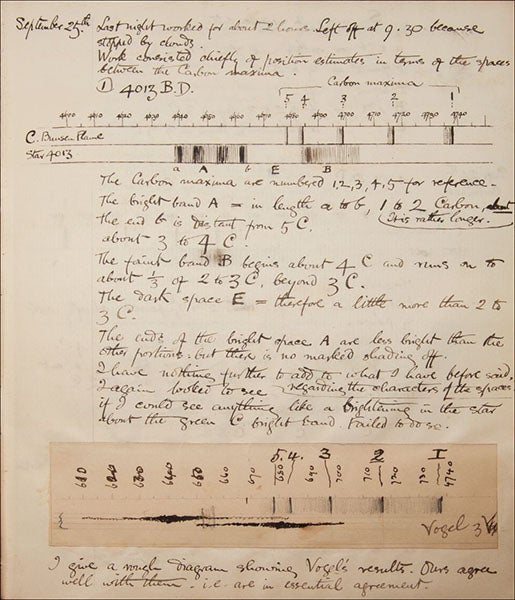 September 25th Last night worked for about 2 hours. Left off at 9.30 because
stopped by clouds.
Work consisted chiefly of position estimates in terms of the spaces
between the Carbon maxima.
① 4013 B.D.
Carbon maxima
5 4 3 2 1
4680 4690 4700 4710 4720 4730 4740
C. Bunsen Flame
Star 4013
a A b E B
The Carbon maxima are numbered 1, 2, 3, 4, 5 for reference.
The bright band A = in length a to b, 1 to 2 Carbon, about
It is rather longer.
the end b is distant from 5 C.
about 3 to 4 C
The faint band B begins about 4 C and runs on to
about 1/3 of 2 to 3 C, beyond 3 C.
The dark space E = therefore a little more than 2 to
3 C.
The ends of the bright space A are less bright than the
other portions. but there is no marked shading off.
I have nothing further to add to what I have before said.
regarding the characters of the spaces.
I again looked to see
if I could see anything like a brightening in the star
about the green C bright band. Failed to do so.
5. 4. 3 2 1
640 650 660 670 680 690 700 710 720 730 4740
Vogel 3
I give a rough diagram showing Vogel's results. Ours agree
well with them. i.e. are in essential agreement.